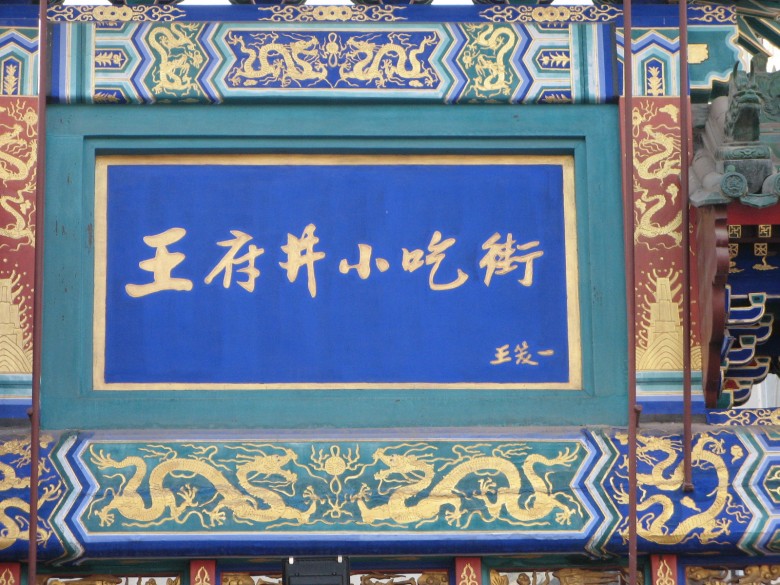 王府井小吃街
王茂一